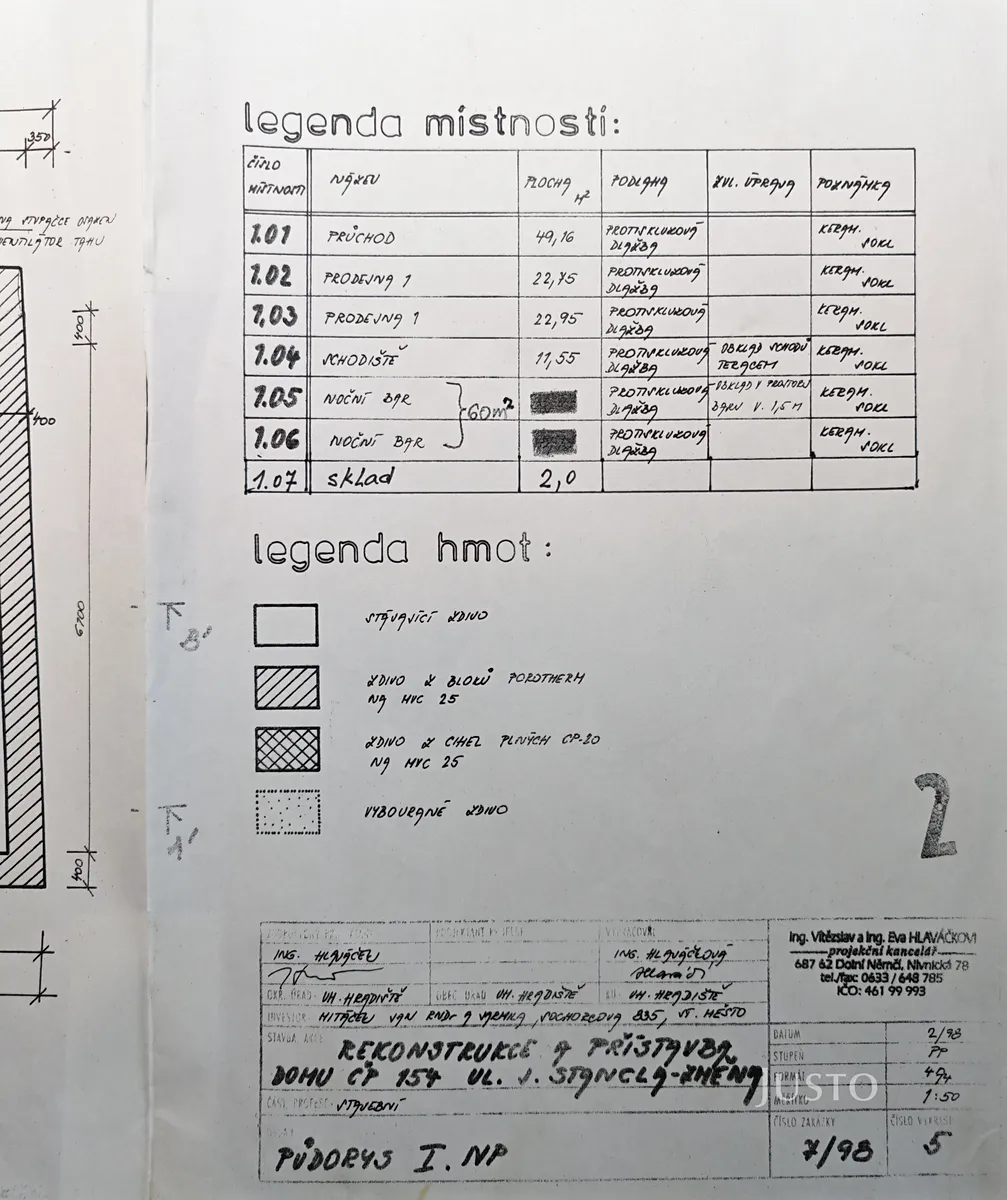 350
400
400
6700
400
legenda místností:
ČÍSLO MÍSTNOSTI NÁZEV PLOCHA M² PODLAHA ZVL. ÚPRAVA POZNÁMKA
1.01 PRŮCHOD 49,16 PROTISKLUZOVÁ DLAŽBA KERAM. SOKL
1.02 PRODEJNA 1 22,75 PROTISKLUZOVÁ DLAŽBA KERAM. SOKL
1.03 PRODEJNA 1 22,95 PROTISKLUZOVÁ DLAŽBA KERAM. SOKL
1.04 SCHODIŠTĚ 11,55 PROTISKLUZOVÁ DLAŽBA OBKLAD SCHODŮ TERACEM KERAM. SOKL
1.05 NOČNÍ BAR PROTISKLUZOVÁ DLAŽBA OBKLAD V PROSTORU BARU V. 1,5 M KERAM. SOKL
60m²
1.06 NOČNÍ BAR PROTISKLUZOVÁ DLAŽBA KERAM. SOKL
1.07 sklad 2,0
legenda hmot:
STÁVAJÍCÍ ZDIVO
ZDIVO Z BLOKŮ POROTHERM
NA MVC 25
ZDIVO Z CIHEL PLNÝCH CP-20
NA MVC 25
VYBOURANÉ ZDIVO
2
ING. HLAVÁČEK
ING. HLAVÁČKOVÁ
OKR. ÚŘAD UH. HRADIŠTĚ OBEC. ÚŘAD UH. HRADIŠTĚ UH. HRADIŠTĚ
INVESTOR SOCHORCOVA 835, ST. MĚSTO
STAVBA, AKCE
REKONSTRUKCE A PŘÍSTAVBA
DOMU ČP 154 UL. J. STANCLA-ZMĚNA
ČÁST, PROFESE STAVEBNÍ
PŮDORYS I. NP
Ing. Vítězslav a Ing. Eva HLAVÁČKOVI
projekční kancelář
687 62 Dolní Němčí, Nivnická 78
tel./fax: 0633 / 648 785
IČO: 461 99 993
DATUM 2/98
STUPEŇ PP
FORMÁT 4A4
MĚŘÍTKO 1:50
ČÍSLO ZAKÁZKY 7/98
ČÍSLO VÝKRESU 5
JUSTO